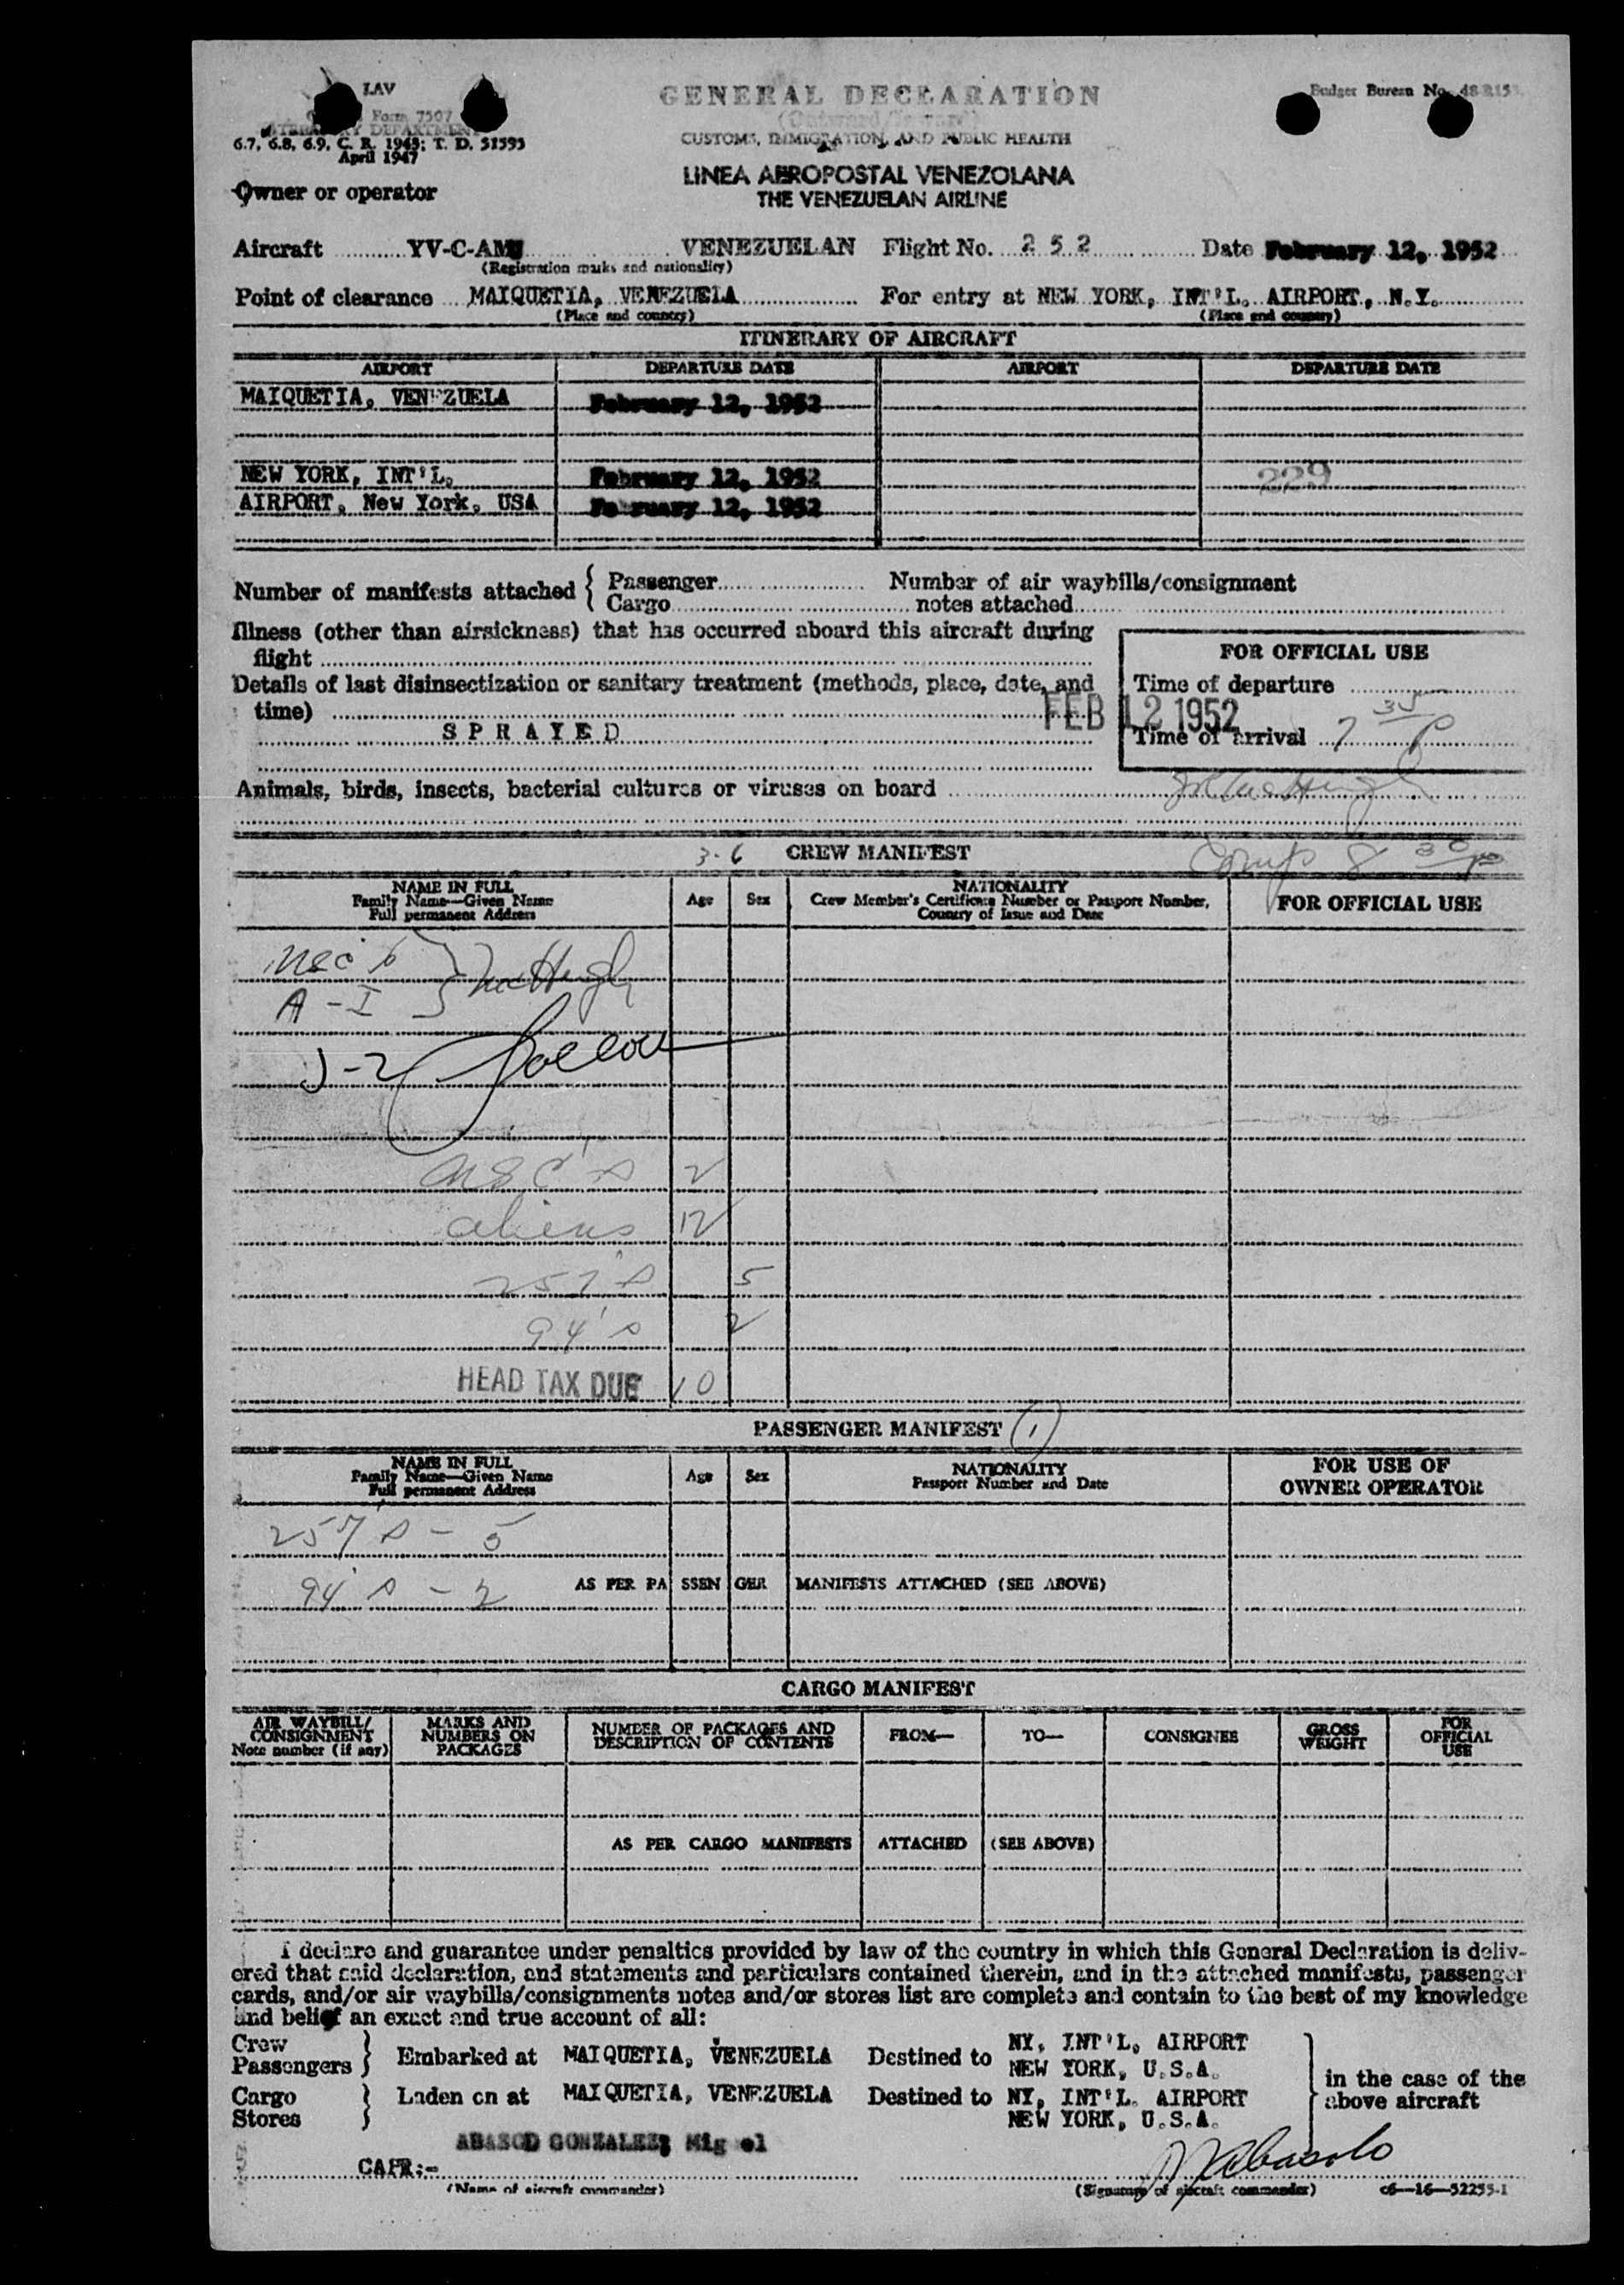 LAV
Form 7507
TREASURY DEPARTMENT
6.7, 6.8, 6.9, C. R. 1943; T. D. 51593
April 1947
Budget Bureau No. 48-R15
GENERAL DECLARATION
(Outward/Inward)
CUSTOMS, IMMIGRATION, AND PUBLIC HEALTH
LINEA AEROPOSTAL VENEZOLANA
THE VENEZUELAN AIRLINE
Owner or operator
Aircraft YV-C-AM VENEZUELAN Flight No. 252 Date February 12, 1952
(Registration marks and nationality)
Point of clearance MAIQUETIA, VENEZUELA For entry at NEW YORK, INT'L. AIRPORT, N.Y.
(Place and country) (Place and country)
ITINERARY OF AIRCRAFT
AIRPORT DEPARTURE DATE AIRPORT DEPARTURE DATE
MAIQUETIA, VENEZUELA February 12, 1952
NEW YORK, INT'L. February 12, 1952 229
AIRPORT, New York, USA February 12, 1952
Number of manifests attached { Passenger Number of air waybills/consignment
Cargo notes attached
Illness (other than airsickness) that has occurred aboard this aircraft during
flight
FOR OFFICIAL USE
Details of last disinsectization or sanitary treatment (methods, place, date, and
time)
Time of departure
FEB 12 1952
SPRAYED
Time of arrival 7 35 P
Animals, birds, insects, bacterial cultures or viruses on board
3-6 CREW MANIFEST Comp 8 30 p
NAME IN FULL
Family Name—Given Name
Full permanent Address
Age Sex
NATIONALITY
Crew Member's Certificate Number or Passport Number,
Country of Issue and Date
FOR OFFICIAL USE
USC 6 } McHugh
A - I
J-2
USC's 2
aliens 12
257's 5
94's 2
HEAD TAX DUE 10
PASSENGER MANIFEST (1)
NAME IN FULL
Family Name—Given Name
Full permanent Address
Age Sex
NATIONALITY
Passport Number and Date
FOR USE OF
OWNER OPERATOR
257's - 5
94's - 2 AS PER PASSENGER MANIFESTS ATTACHED (SEE ABOVE)
CARGO MANIFEST
AIR WAYBILL/
CONSIGNMENT
Note number (if any)
MARKS AND
NUMBERS ON
PACKAGES
NUMBER OF PACKAGES AND
DESCRIPTION OF CONTENTS
FROM— TO— CONSIGNEE
GROSS
WEIGHT
FOR
OFFICIAL
USE
AS PER CARGO MANIFESTS ATTACHED (SEE ABOVE)
I declare and guarantee under penalties provided by law of the country in which this General Declaration is deliv-
ered that said declaration, and statements and particulars contained therein, and in the attached manifests, passenger
cards, and/or air waybills/consignments notes and/or stores list are complete and contain to the best of my knowledge
and belief an exact and true account of all:
Crew
Passengers } Embarked at MAIQUETIA, VENEZUELA Destined to NY, INT'L, AIRPORT
NEW YORK, U.S.A.
Cargo
Stores } Laden on at MAIQUETIA, VENEZUELA Destined to NY, INT'L. AIRPORT
NEW YORK, U.S.A.
in the case of the
above aircraft
GONZALEZ, Miguel
CAPR:-
(Name of aircraft commander)
(Signature of aircraft commander) c6—16—52255-1